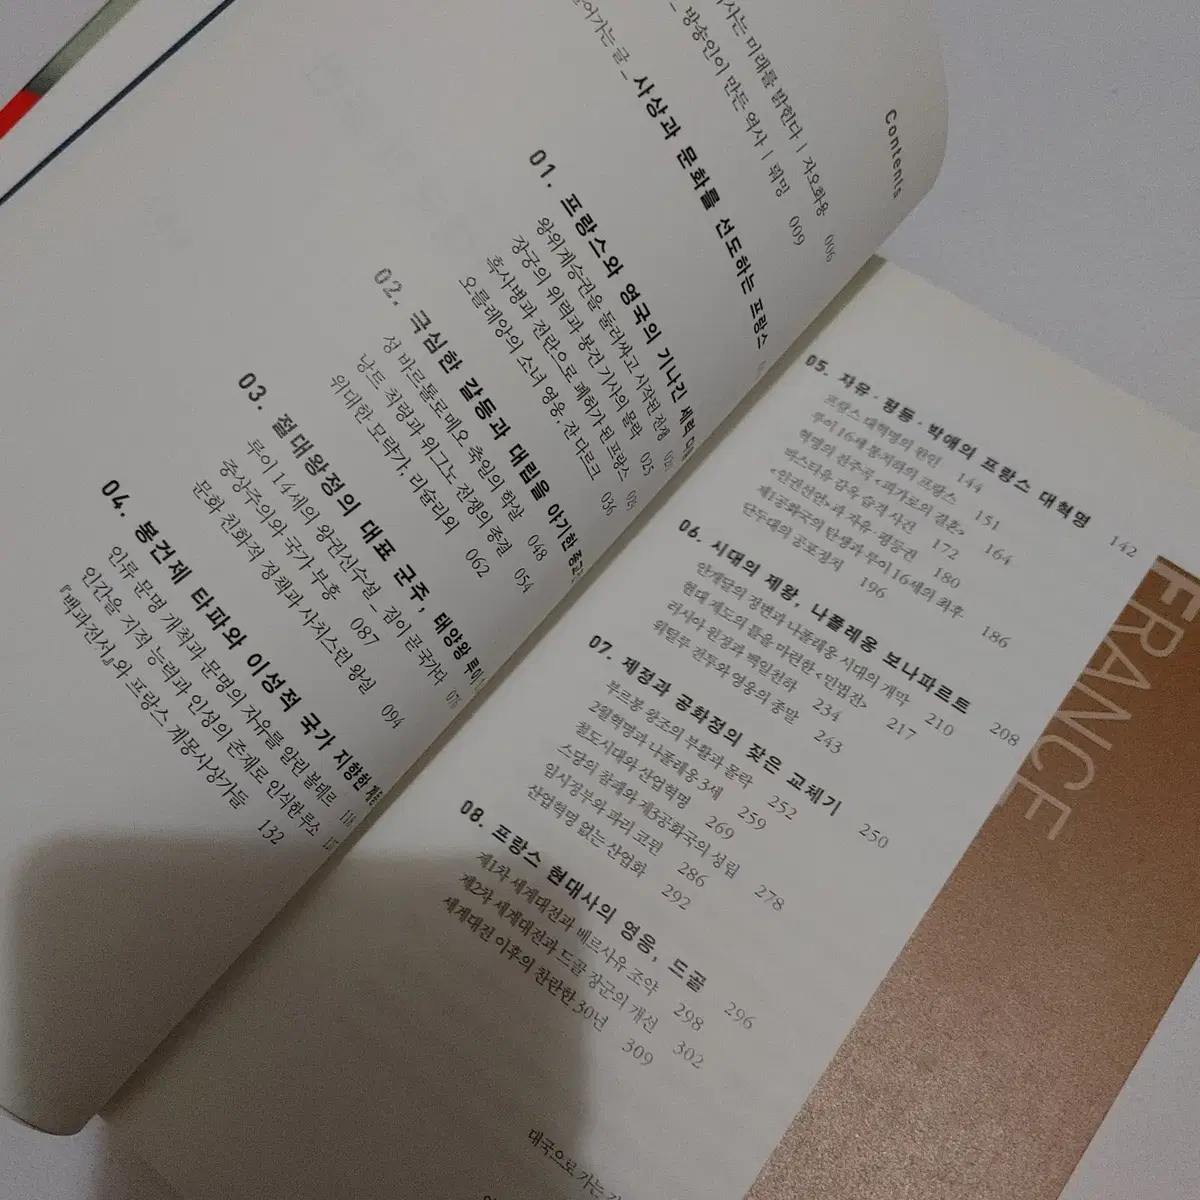 Contents
사는 미래를 밝힌다 | 자오화용 006
방송인이 만든 역사 | 펑밍 009
어가는 글_ 사상과 문화를 선도하는 프랑스
01. 프랑스와 영국의 기나긴 세력 다
왕위계승권을 둘러싸고 시작된 전쟁
장궁의 위력과 봉건 기사의 몰락 025
흑사병과 전란으로 폐허가 된 프랑스
오를레앙의 소녀 영웅, 잔 다르크 036
02. 극심한 갈등과 대립을 야기한 종교
성 바르톨로메오 축일의 학살 048
낭트 칙령과 위그노 전쟁의 종결 054
위대한 모략가, 리슐리외 062
03. 절대왕정의 대표 군주, 태양왕 루이
루이 14세의 왕권신수설_ 짐이 곧 국가다 076
중상주의와 국가 부흥 087
문화 친화적 정책과 사치스런 왕실 094
04. 봉건제 타파와 이성적 국가 지향한 계몽
인류 문명 개척과 문명의 자유를 알린 볼테르
인간을 지적 능력과 인성의 존재로 인식한 루소
『백과전서』와 프랑스 계몽사상가들 132
05. 자유·평등·박애의 프랑스 대혁명 142
프랑스 대혁명의 원인 144
루이 16세 통치하의 프랑스 151
혁명의 전주곡 <피가로의 결혼> 164
바스티유 감옥 습격 사건 172
<인권선언>과 자유·평등권 180
제1공화국의 탄생과 루이 16세의 최후 186
단두대의 공포정치 196
06. 시대의 제왕, 나폴레옹 보나파르트 208
안개달의 정변과 나폴레옹 시대의 개막 210
현대 제도의 틀을 마련한 <민법전> 217
러시아 원정과 백일천하 234
워털루 전투와 영웅의 종말 243
07. 제정과 공화정의 잦은 교체기 250
부르봉 왕조의 부활과 몰락 252
2월혁명과 나폴레옹 3세 259
철도시대와 산업혁명 269
스당의 참패와 제3공화국의 성립 278
임시정부와 파리 코뮌 286
산업혁명 없는 산업화 292
08. 프랑스 현대사의 영웅, 드골 296
제1차 세계대전과 베르사유 조약 298
제2차 세계대전과 드골 장군의 개선 302
세계대전 이후의 찬란한 30년 309
대국으로 가는
FRANCE